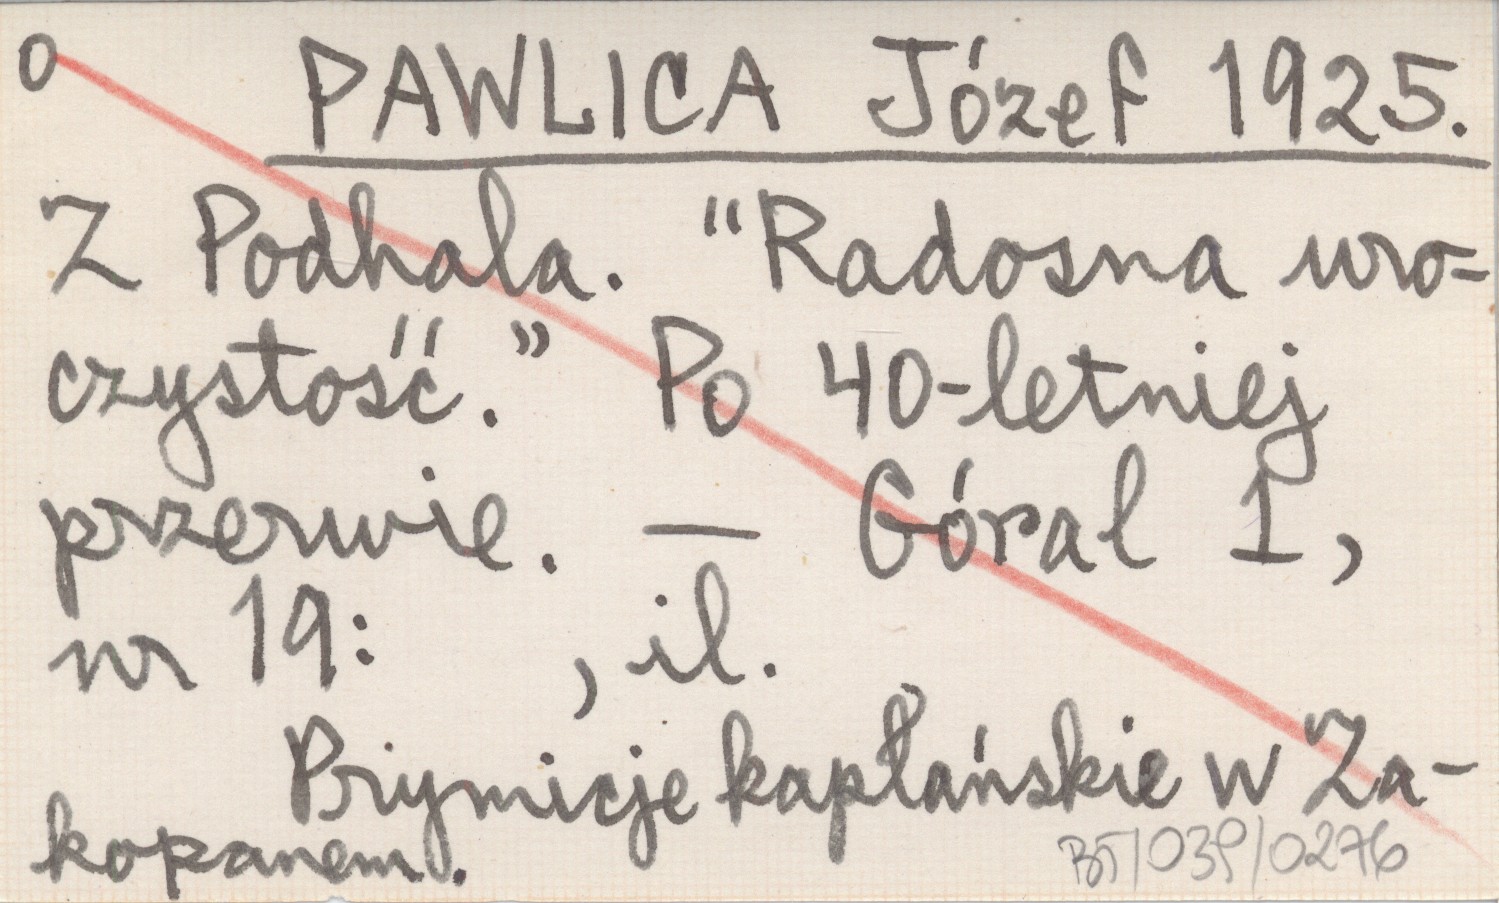 O PAWLICA Józef 1925.
Z Podhala. “Radosna uro-
czystość.” Po 40-letniej
przerwie. — Góral 1,
nr 19: , il.
Prymicje kapłańskie w Za-
kopanem.
BJ/039/0276